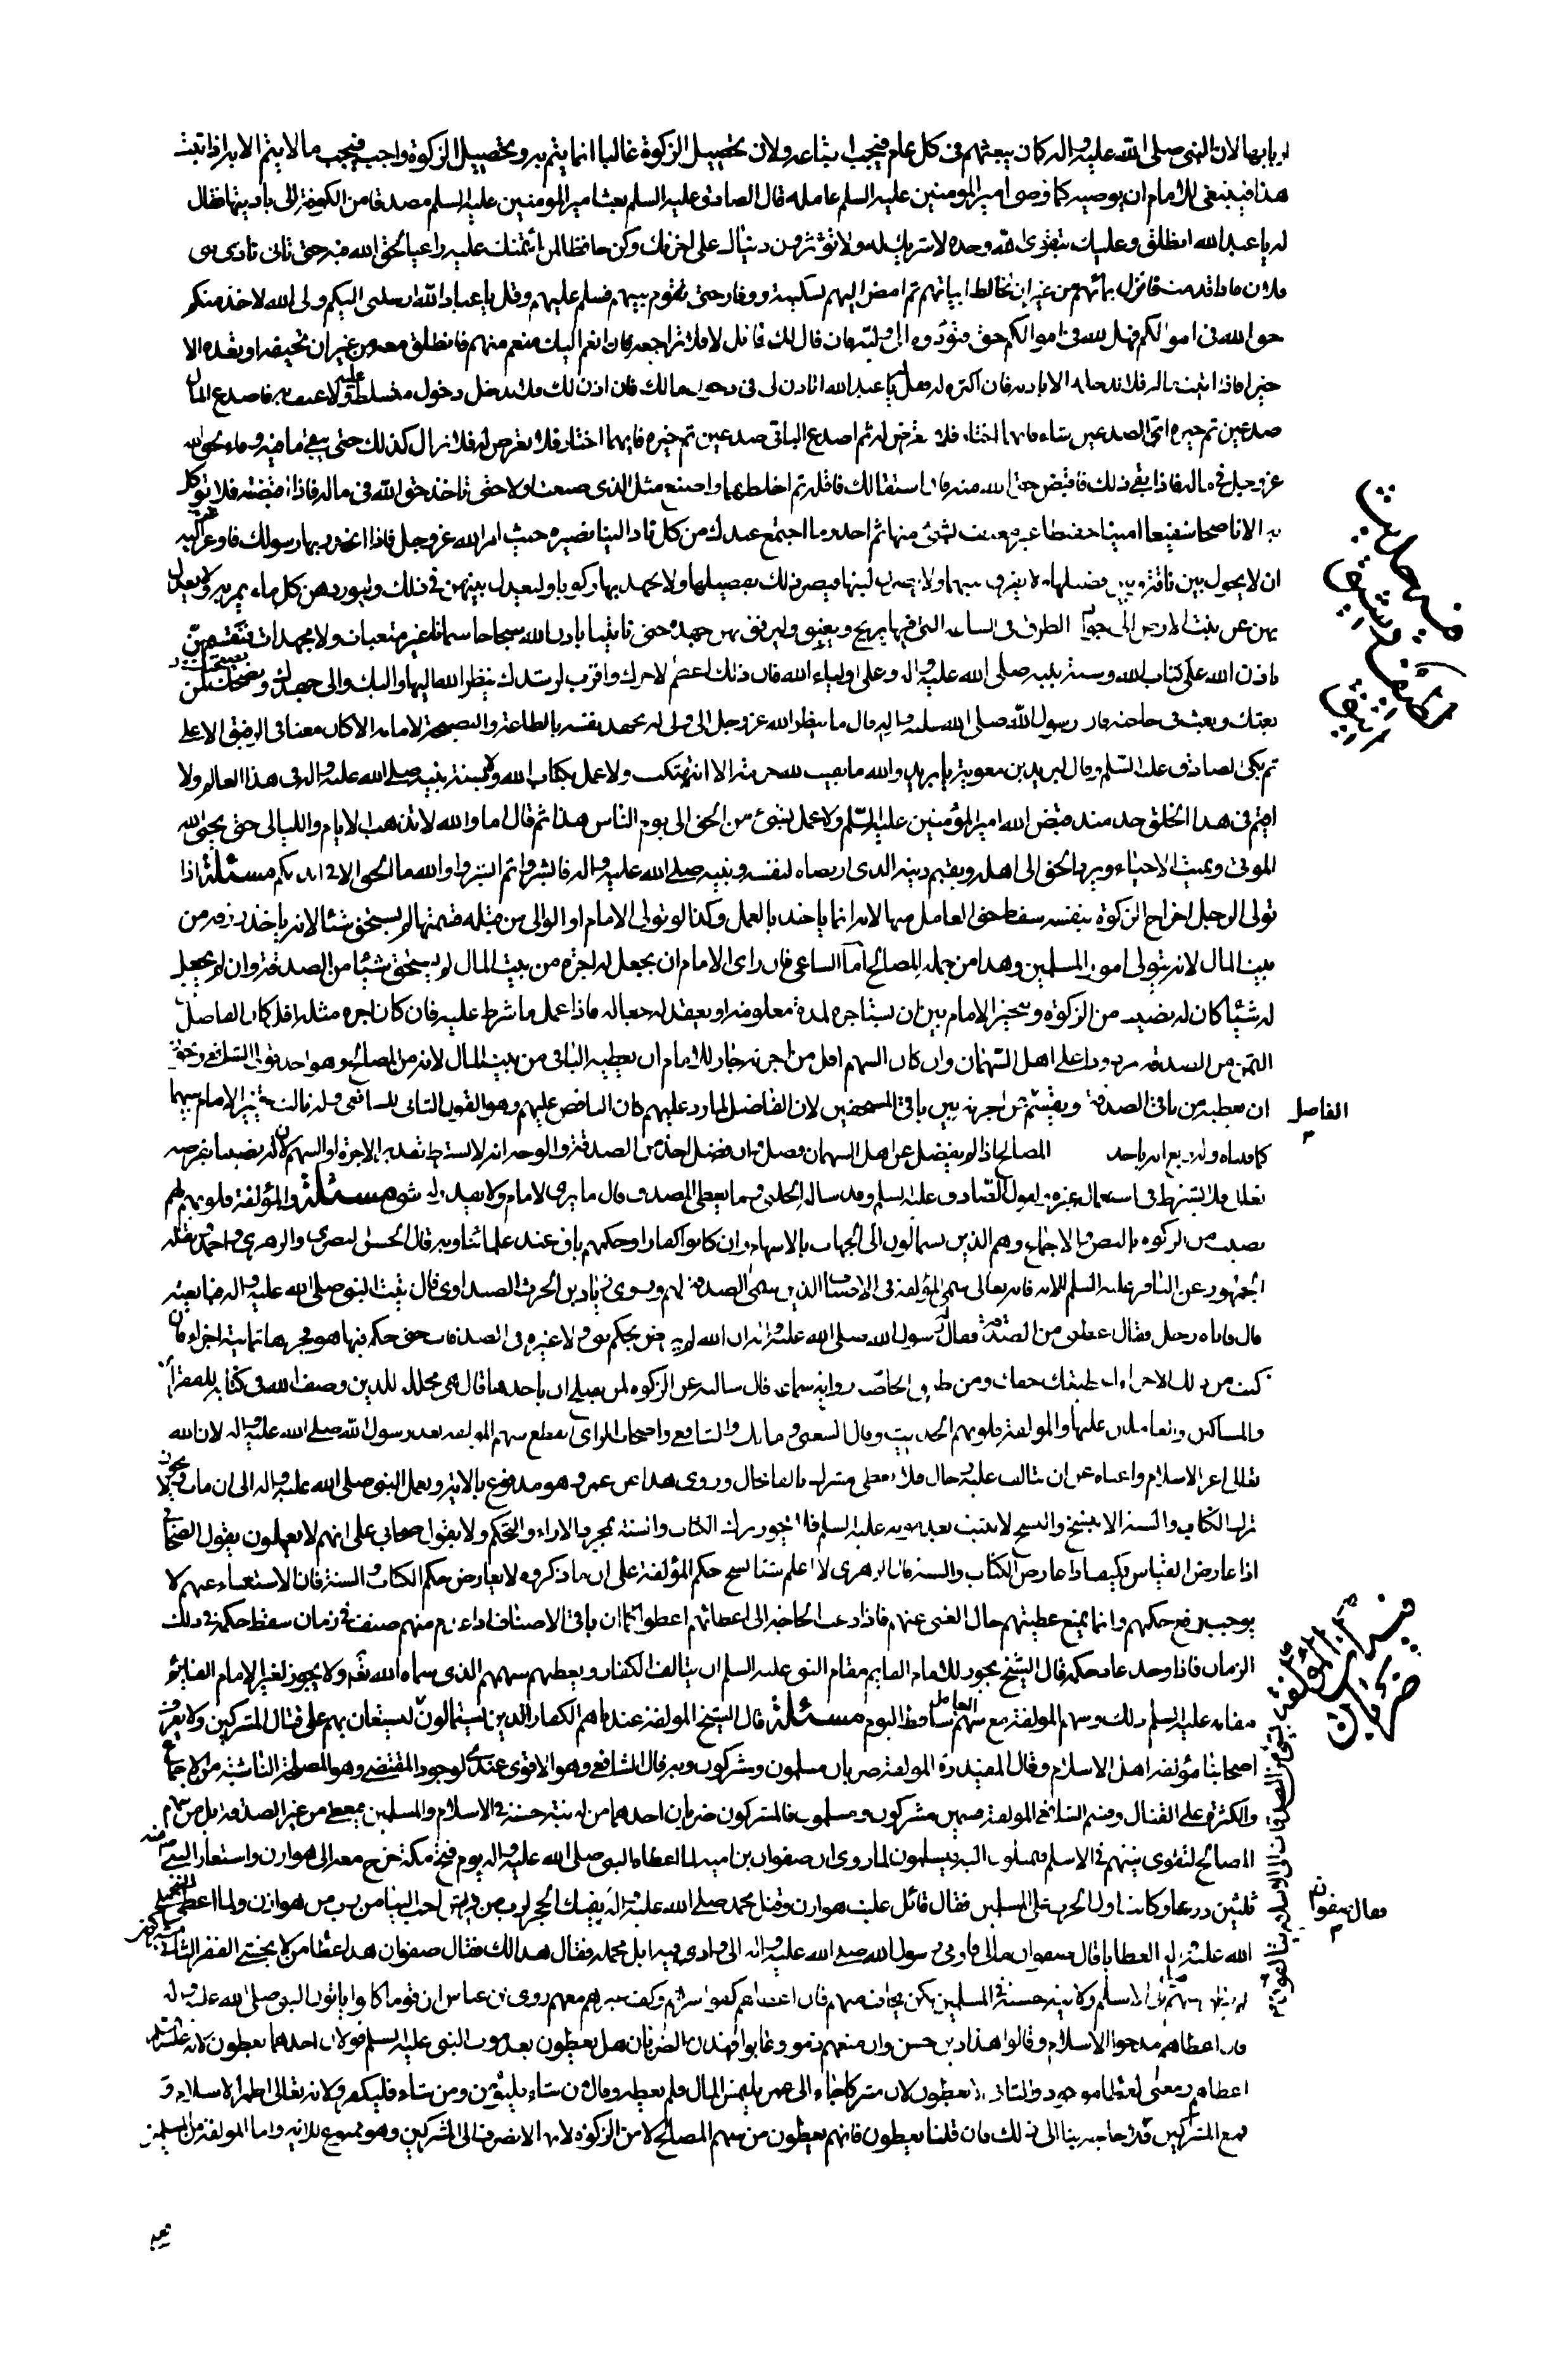 لاربابها لان النبی صلی الله علیه واله کان یبعثهم فی کل عام فیجب اتباعه ولان تحصیل الزکوة غالبا انما یتم به وتحصیل الزکوة واجب فیجب ما لا یتم الا به اذا ثبت
هذا فینبغی للامام ان یوصیه کما وصی امیر المومنین علیه السلم عامله قال الصادق علیه السلم بعث امیر المومنین علیه السلم مصدقا من الکوفة الی بادیتها فقال
له یا عبد الله انطلق وعلیک بتقوی الله وحده لا شریک له ولا تؤثرن دنیاک علی اخرتک وکن حافظا لمن ائتمنتک علیه راعیا لحق الله فیه حتی تاتی نادی بنی
فلان فاذا قدمت فانزل بمائهم من غیر ان تخالط ابیاتهم ثم امض الیهم بسکینة ووقار حتی تقوم بینهم فسلم علیهم وقل یا عباد الله ارسلنی الیکم ولی الله لاخذ منکم
حق الله فی اموالکم فهل لله فی اموالکم حق فتؤدوه الی ولیه فان قال لک قائل لا فلا تراجعه فان انعم الیک منعم منهم فانطلق معه من غیر ان تخیفه او تعده الا
خیرا فاذا اتیت ماله فلا تدخله الا باذنه فان اکثره له فقل یا عبد الله اتاذن لی فی دخول مالک فان اذن لک فلا تدخل دخول متسلط علیه ولا عنف به فاصدع المال
صدعین ثم خیره ای الصدعین شاء فایهما اختار فلا تعرض له ثم اصدع الباقی صدعین ثم خیره فایهما اختار فلا تعرض له فلا تزال کذلک حتی یبقی ما فیه وفاء لحق الله
عز وجل فی ماله فاذا بقی ذلک فاقبض حق الله منه فان استقالک فاقله ثم اخلطهما واصنع مثل الذی صنعت اولا حتی تاخذ حق الله فی ماله فاذا قبضته فلا توکل
به الا ناصحا شفیقا امینا حفیظا غیر معنف بشئ منها ثم احدر ما اجتمع عندک من کل ناد الینا نصیره حیث امر الله عز وجل فاذا انحدر بها رسولک فاوعز الیه
ان لا یحول بین ناقة وبین فصیلها ولا یفرق بینهما ولا یصرن لبنها فیضر ذلک بفصیلها ولا یجهد بها رکوبا ولیعدل بینهن فی ذلک ولیوردهن کل ماء یمر به ولا یعدل
بهن عن نبت الارض الی جواد الطرق فی الساعة التی فیها یریح ویعنق ولیرفق بهن جهده حتی تاتینا باذن الله سحاحا سمانا غیر متعبات ولا مجهدات فنقسمهن
باذن الله علی کتاب الله وسنة نبیه صلی الله علیه واله وعلی اولیاء الله فان ذلک اعظم لاجرک واقرب لرشدک ینظر الله الیها والیک والی جهدک ونصیحتک لمن
بعثک وبعثت فی حاجته فان رسول الله صلی الله علیه واله قال ما ینظر الله عز وجل الی ولی له یجهد نفسه بالطاعة والنصیحة لامامه الا کان معنا فی الرفیق الاعلی
ثم بکی الصادق علیه السلم وقال لبرید بن معویة یا برید والله ما بقیت لله حرمة الا انتهکت ولا عمل بکتاب الله ولا سنة نبیه صلی الله علیه واله فی هذا العالم ولا
اقیم فی هذا الخلق حد منذ قبض الله امیر المؤمنین علیه السلم ولا عمل بشئ من الحق الی یوم الناس هذا ثم قال اما والله لا تذهب الایام واللیالی حتی یحیی الله
الموتی ویمیت الاحیاء ویرد الحق الی اهله ویقیم دینه الذی ارتضاه لنفسه ونبیه صلی الله علیه واله فابشروا ثم ابشروا والله ما الحق الا فی ایدیکم مسئلة اذا
تولی الرجل اخراج الزکوة بنفسه سقط حق العامل منها لانه انما یاخذ بالعمل وکذا لو تولی الامام او الوالی من قبله قسمتها لم یستحق شیئا لانه یاخذ رزقه من
بیت المال لانه یتولی امور المسلمین وهذا من جملة المصالح اما الساعی فان رای الامام ان یجعل له اجرة من بیت المال لم یستحق شیئا من الصدقة وان لم یجعل
له شیئا کان له نصیب من الزکوة ویتخیر الامام بین ان یستاجره لمدة معلومة او یعقد له جعالة فاذا عمل ما شرط علیه فان کان اجرة مثله اقل کان الفاضل
الثمن من الصدقة مردودا علی اهل السهمان وان کان السهم اقل من اجرته جاز للامام ان یعطیه الباقی من بیت المال لانه من المصالح وهو احد قولی الشافعی ویجوز
ان یعطیه من باقی الصدقة ویقسم من اجرته بین باقی المستحقین لان الفاضل لما رد علیهم کان الناقص علیهم وهو القول الثانی للشافعی وله ثالث یتخیر الامام بینهما
کما قلناه وله رابع انه یاخذ المصالح اذا لم یفضل عن اهل السهمان فضل فان فضل اخذ من الصدقة والوجه انه لا یشترط تقدیر الاجرة او السهم لان له نصیبا بفرضه
تعالی فلا یشترط فی استعماله غیره لقول الصادق علیه السلم وقد ساله الحلبی ما یعطی المصدق قال ما یری الامام ولا یقدر له شئ مسئلة والمؤلفة قلوبهم لهم
نصیب من الزکوة بالنص والاجماع وهم الذین یستمالون الی الجهاد بالاسهام وان کانوا کفارا وحکمهم باق عند علمائنا وبه قال الحسن البصری والزهری واحمد ونقله
الجمهور عن الباقر علیه السلم للایة فانه تعالی سمی المؤلفة فی الاصناف الذین سمی الصدقة لهم وروی زیاد بن الحرث الصدائی قال اتیت النبی صلی الله علیه واله فبایعته
قال فاتاه رجل فقال اعطنی من الصدقة فقال له رسول الله صلی الله علیه واله ان الله لم یرض بحکم نبی ولا غیره فی الصدقات حتی حکم فیها هو فجزاها ثمانیة اجزاء فان
کنت من تلک الاجزاء اعطیتک حقک ومن طریق الخاصة روایة سماعة قال سالته عن الزکوة لمن یصلح ان یاخذها قال هی محلل للذین وصف الله فی کتابه للفقراء
والمساکین والعاملین علیها والمولفة قلوبهم الحدیث وقال الشعبی ومالک والشافعی واصحاب الرای انقطع سهم المولفة بعد رسول الله صلی الله علیه واله لان الله
تعالی اعز الاسلام واغناه عن ان یتالف علیه رجال فلا یعطی مشرک تالفا بحال وروی هذا عن عمر وهو مدفوع بالایة وبعمل النبی صلی الله علیه واله الی ان مات ولا یجوز
ترک الکتاب والسنة الا بنسخ والنسخ لا یثبت بعد موته علیه السلم فلا یجوز ترک الکتاب والسنة بمجرد الاراء والتحکم ولا بقول صحابی علی انهم لا یعملون بقول الصحابی
اذا عارض القیاس فکیف اذا عارض الکتاب والسنة قال الزهری لا اعلم شیئا نسخ حکم المؤلفة علی ان ما ذکروه لا یعارض حکم الکتاب والسنة فان الاستغناء عنهم لا
یوجب رفع حکمهم وانما یمنع عطیتهم حال الغنی عنهم فاذا دعت الحاجة الی اعطائهم اعطوا کما ان باقی الاصناف اذا عدم منهم صنف فی زمان سقط حکمه فی ذلک
الزمان فاذا وجد عاد حکمه قال الشیخ یجوز للامام القایم مقام النبی علیه السلم ان یتالف الکفار ویعطیهم سهمهم الذی سماه الله لهم ولا یجوز لغیر الامام القائم
مقامه علیه السلم ذلک وسهم المولفة مع سهم العامل ساقط الیوم مسئلة قال الشیخ المولفة عندنا هم الکفار الذین یستمالون لیستعان بهم علی قتال المشرکین ولا یعرف
اصحابنا مؤلفة اهل الاسلام وقال المفید ره المولفة ضربان مسلمون ومشرکون وبه قال الشافعی وهو الاقوی عندی لوجود المقتضی وهو المصلحة الناشئة من الاجتماع
والکثرة علی القتال وقسم الشافعی المولفة قسمین مشرکون ومسلمون فالمشرکون ضربان احدهما من له نیة حسنة فی الاسلام والمسلمین فیعطی من غیر الصدقة بل من سهم
المصالح لتقوی نیتهم فی الاسلام فیمیلون الیه فیسلمون لما روی ان صفوان بن امیة لما اعطاه النبی صلی الله علیه واله یوم فتح مکة خرج معه الی هوازن واستعار النبی ص منه
ثلثین درعا وکانت اول الحرب علی المسلمین فقال قائل غلبت هوازن وقتل محمد صلی الله علیه واله بفیک الحجر لرب من قریش احب الینا من رب من هوازن ولما اعطی النبی صلی
الله علیه واله العطایا قال صفوان مالی فاومی رسول الله صلی الله علیه واله الی وادی فیه ابل محملة فقال هذا لک فقال صفوان هذا عطاء من لا یخشی الفقر الثانی
ولا نیة حسنة فی المسلمین لکن یخاف منهم فان اعطاهم کفوا شرهم وکف غیرهم معهم روی ابن عباس ان قوما کانوا یاتون النبی صلی الله علیه واله
فان اعطاهم مدحوا الاسلام وقالوا هذا دین حسن وان منعهم ذموا وعابوا فهذان الضربان هل یعطون بعد موت النبی علیه السلم قولان احدهما یعطون لانه علیه السلم
اعطاهم ومعنی العطاء موجود والثانی لا یعطون لان مشرکا جاء الی عمر یلتمس المال فلم یعطه وقال من شاء فلیؤمن ومن شاء فلیکفر ولانه تعالی اظهر الاسلام و
قمع المشرکین فلا حاجة بنا الی ذلک فان قلنا یعطون فانهم یعطون من سهم المصالح لا من الزکوة لانه لا یصرف الی المشرکین وهو ممنوع للایة واما المولفة من المسلمین
الفاصل
فقال صفوان